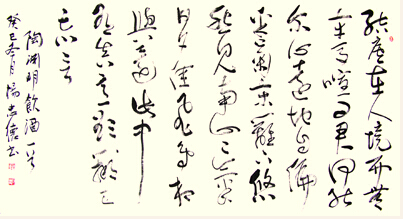 結廬在人境而無
車馬喧問君何能
爾心遠地自偏
采菊東籬下悠
然見南山山氣
日夕佳飛鳥相
與還此中
有真意欲辨已
忘言
陶淵明飲酒一首
癸巳冬月書